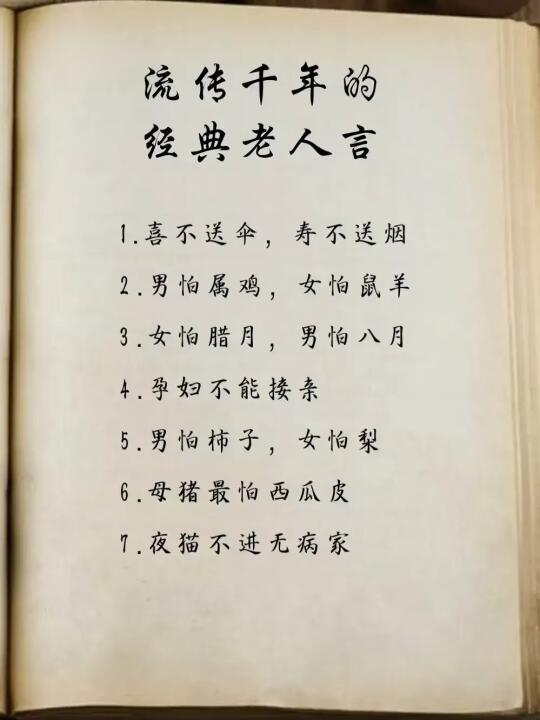 流传千年的
经典老人言
1.喜不送伞，寿不送烟
2.男怕属鸡，女怕鼠羊
3.女怕腊月，男怕八月
4.孕妇不能接亲
5.男怕柿子，女怕梨
6.母猪最怕西瓜皮
7.夜猫不进无病家